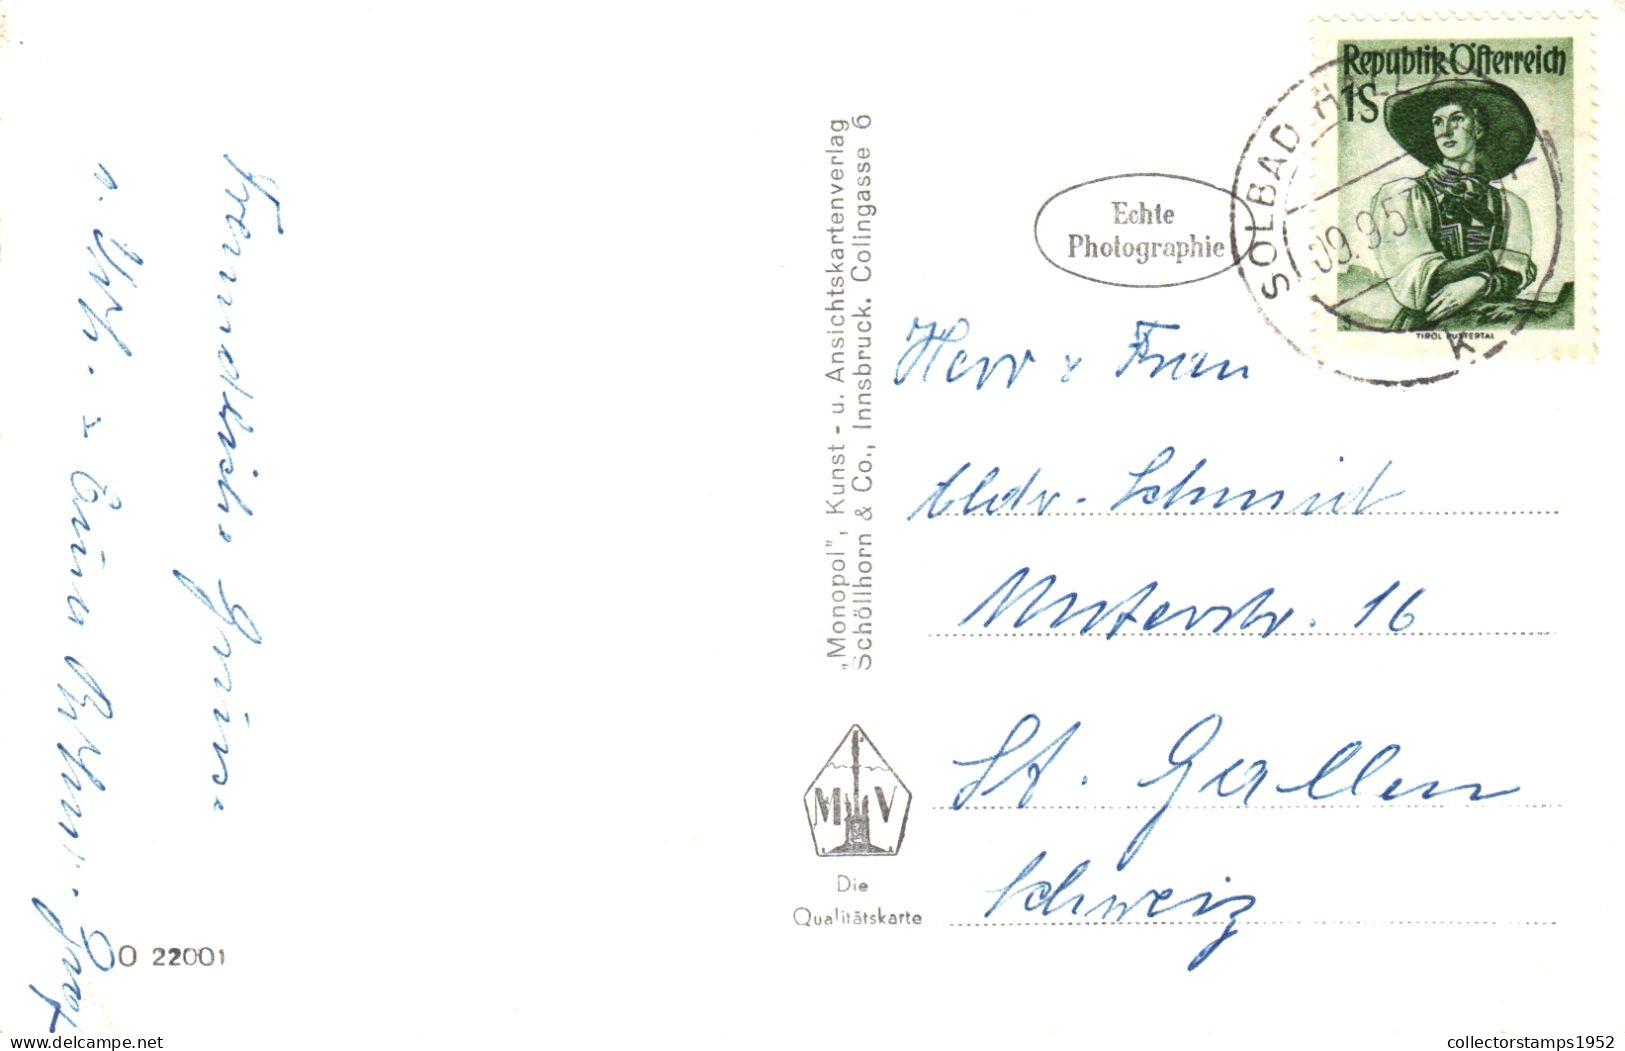 Freundliche Grüsse
v.
O 22001
"Monopol", Kunst - u. Ansichtskartenverlag
Schöllhorn & Co., Innsbruck. Colingasse 6
M V
Die
Qualitätskarte
Echte
Photographie
Republik Österreich
1S
TIROL PUSTERTAL
SOLBAD HALL
09.9.57
K
Herr & Frau
Schmidt
16
St. Gallen
Schweiz
collectorstamps1952